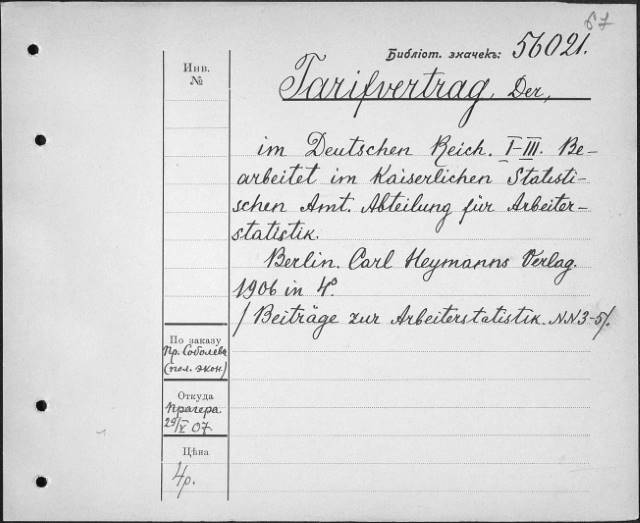 57
Библіот. значекъ: 56021.
Инв.
№
Tarifvertrag, Der,
im Deutschen Reich. I-III. Be-
arbeitet im Kaiserlichen Statisti-
schen Amt. Abteilung für Arbeiter-
statistik.
Berlin. Carl Heymanns Verlag.
1906 in 4°.
/Beiträge zur Arbeiterstatistik. N.N 3-5/.
По заказу
Пр. Соболева
(пол. экон)
Откуда
Прагера
29/IX 07
Цѣна
4р.